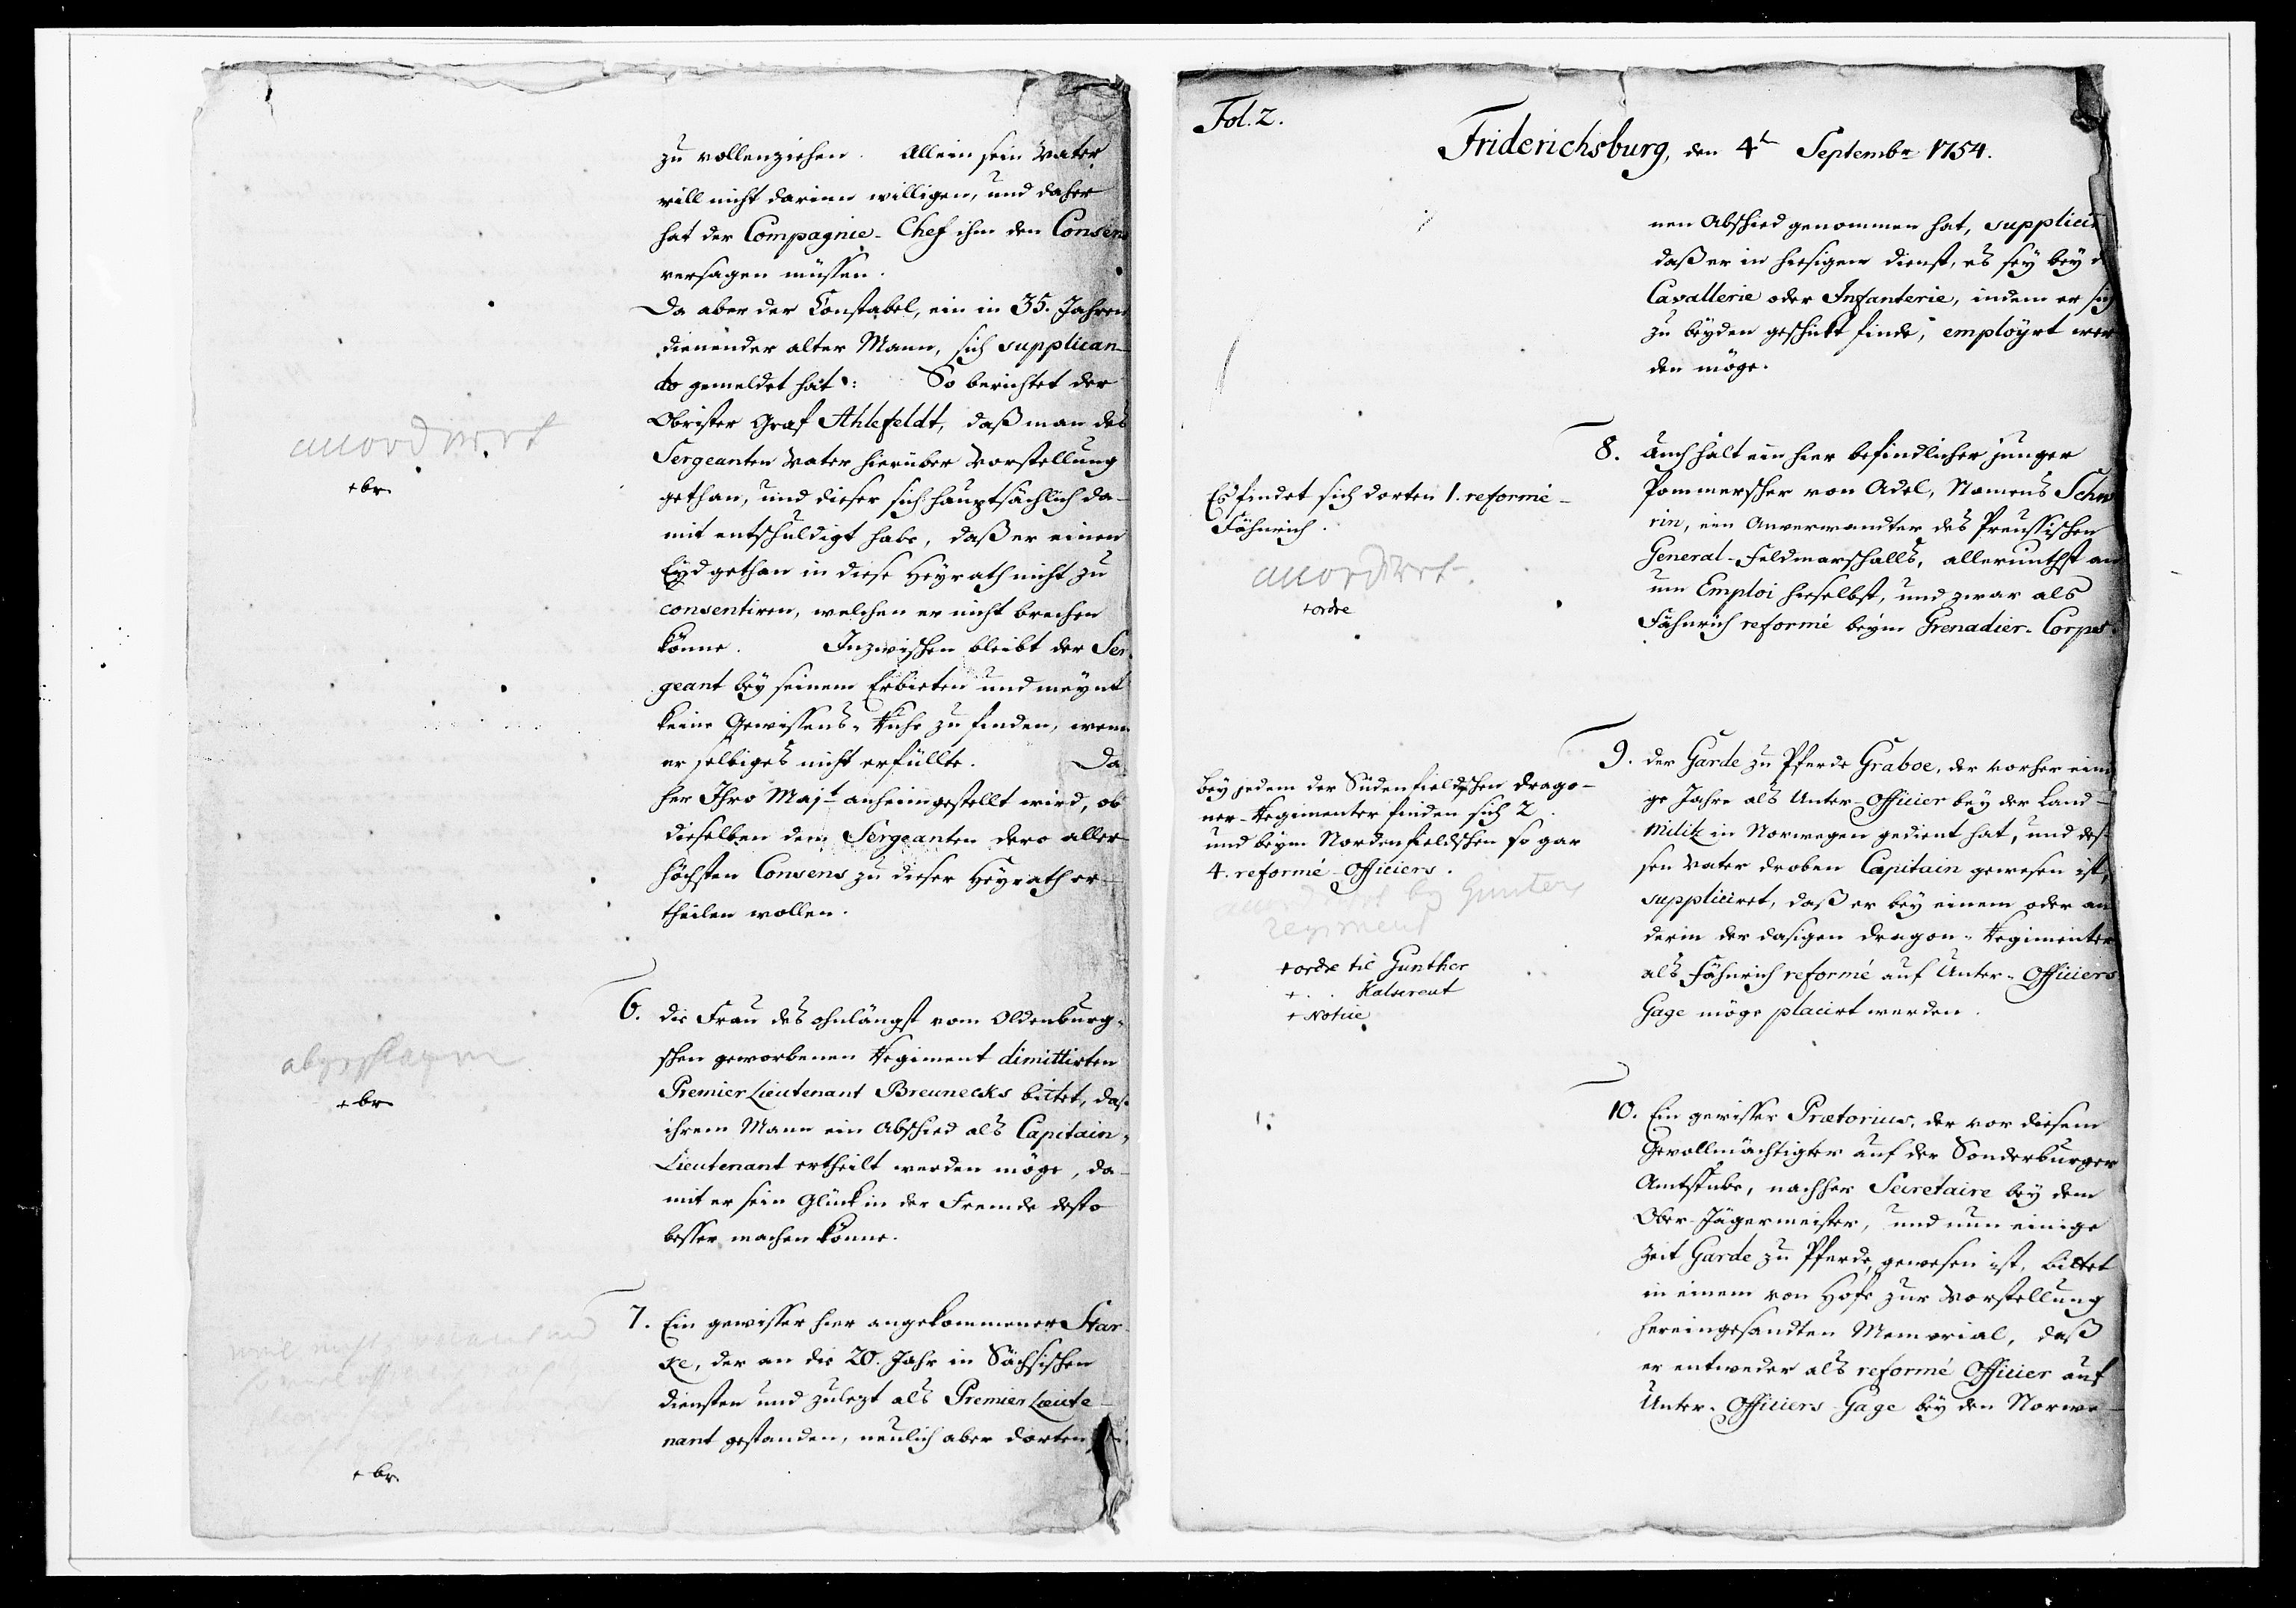 zu vollenziehen. Allein sein Vater
will nicht darinn willigen, und daher
hat der Compagnie-Chef ihm den Consens
versagen müssen.
Da aber der Constabel, ein in 35. Jahren
dienender alter Mann, sich supplican-
do gemeldet hat: So berichtet der
Obrister Graf Ahlefeldt, daß man des
Sergeanten Vater hierüber Vorstellung
gethan, und dieser sich hauptsächlich da-
mit entschuldigt habe, daß er einen
Eyd gethan in diese Heyrath nicht zu
consentiren, welchen er nicht brechen
könne. Inzwischen bleibt der Ser-
geant bey seinem Erbieten und meynt
keine Gewissens-Ruhe zu finden, wenn
er selbiges nicht erfüllte. Da
her Ihro Majt anheimgestellt wird, ob
dieselben dem Sergeanten dero aller-
höchsten Consens zu dieser Heyrath er-
theilen wollen.
accordirt
+ br.
6. Die Frau des ohnlängst vom Oldenburg-
schen geworbenen Regiment dimittirten
Premier Lieutenant Breunecks bittet, daß
ihrem Mann ein Abschied als Capitain-
Lieutenant ertheilt werden möge, da-
mit er sein Glück in der Fremde desto
besser machen könne.
abgeschlagen
+ br.
7. Ein gewisser hier angekommener Star-
ke, der an die 20. Jahr in Sächsischen
diensten und zulezt als Premier Lieute-
nant gestanden, neulich aber dorten
weil nicht
+ br.
Fol. 2.
Friderichsburg, den 4t Septembr 1754.
nen Abschied genommen hat, supplicir
daß er in hiesigem dienst, es sey bey d
Cavallerie oder Infanterie, indem er sich
zu beyden geschickt finde, employrt wer
den möge.
8. Auch hält ein hier befindlicher junger
Pommerscher von Adel, Namens Schw
rin, ein Anverwandter des Preussischen
General-Feldmarschalls, allerunthst an
um Emploi hieselbst, und zwar als
Fähnrich reformé beym Grenadier-Corps.
Es findet sich dorten 1. reformé-
Fähnrich.
accordirt.
+ ordre
9. der Garde zu Pferde Graboe, der vorher eini
ge Jahre als Unter-Officier bey der Land-
Militz in Norwegen gedient hat, und des-
sen Vater droben Capitain gewesen ist,
suppliciret, daß er bey einem oder an
derm der dasigen dragon-Regimenter
als Fähnrich reformé auf Unter-Officiers
Gage möge placirt werden.
bey jedem der Südenfieldschen drago-
ner-Regimenter finden sich 2.
und beym Nordenfieldschen so gar
4. reformé-Officiers.
accordirt by Gunters
regiment
+ ordre til Gunther
+ . . Kalvereut
+ Notice
10. Ein gewisser Prætorius, der vor diesem
Gevollmächtigter auf der Sonderburger
Amtstube, nachher Secretaire bey dem
Ober-Jägermeister, und nun einige
Zeit Garde zu Pferde, gewesen ist, bittet
in einem von Hofe zur Vorstellung
hereingesandten Memorial, daß
er entweder als reformé Officier auf
Unter-Officiers-Gage bey den Norwe-